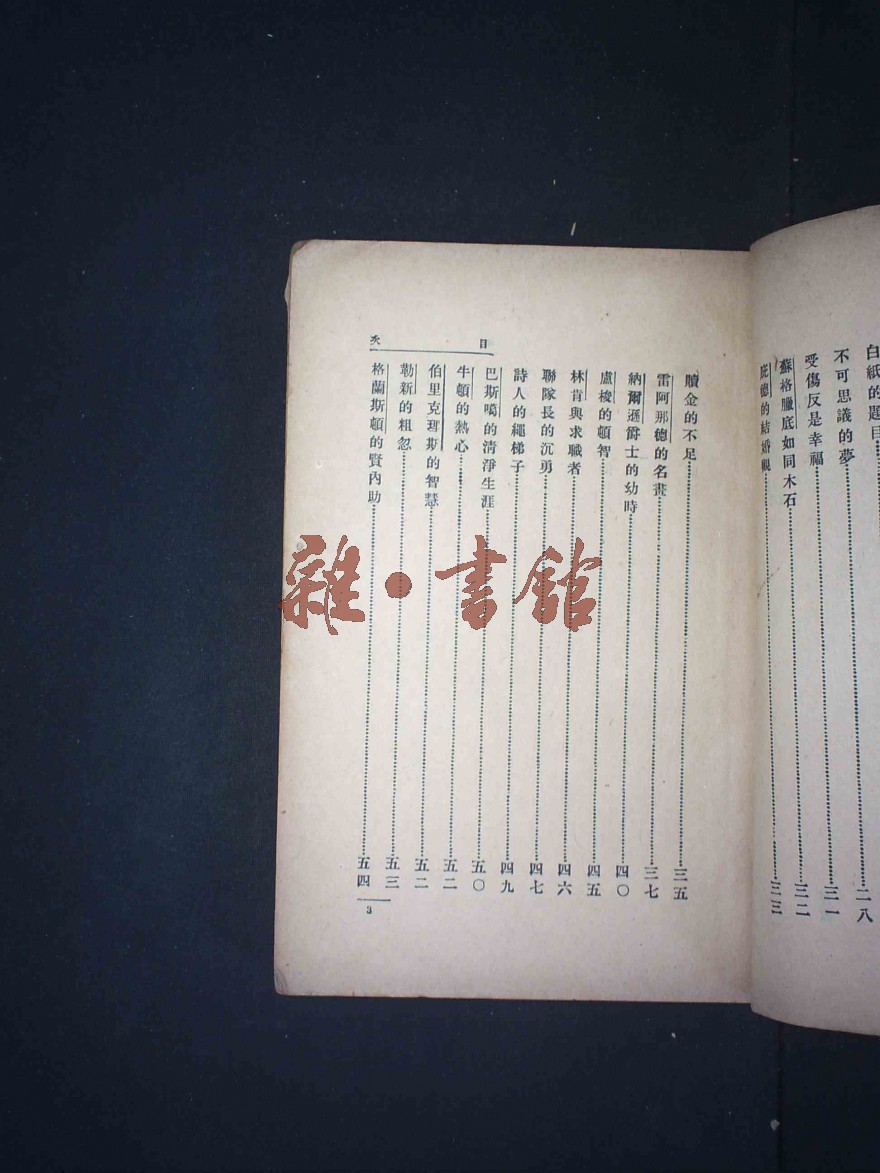 白紙的題目……二八
不可思議的夢……三一
受傷反是幸福……三二
蘇格臘底如同木石……三二
庇德的結婚觀……三三
贖金的不足……三五
雷阿那德的名畫……三七
納爾遜爵士的幼時……四〇
盧梭的頓智……四五
林肯與求職者……四六
聯隊長的沉勇……四七
詩人的繩梯子……四九
巴斯噶的清淨生涯……五〇
牛頓的熱心……五二
伯里克理斯的智慧……五二
勒新的粗忽……五三
格蘭斯頓的賢內助……五四
目次
3
雜·書館